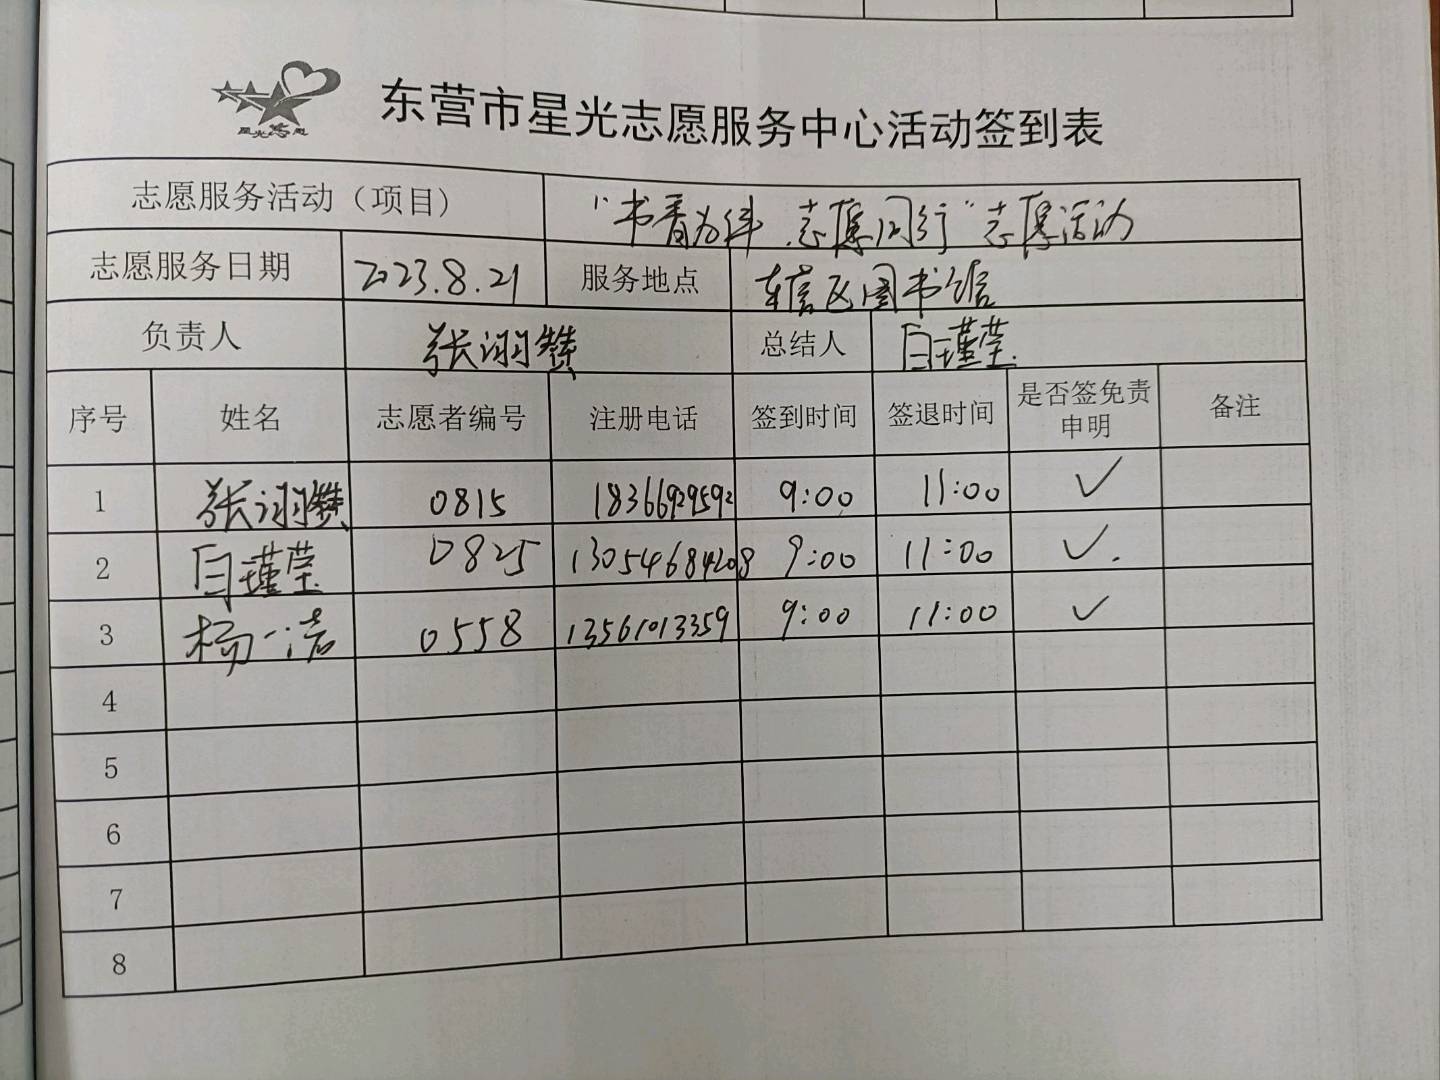 星光志愿
东营市星光志愿服务中心活动签到表
志愿服务活动（项目） “书香为伴 志愿同行”志愿活动
志愿服务日期 2023.8.21 服务地点 东营区图书馆
负责人 张诩赞 总结人 白瑾莹
序号 姓名 志愿者编号 注册电话 签到时间 签退时间 是否签免责申明 备注
1 张诩赞 0815 18366929592 9:00 11:00 ✓
2 白瑾莹 0825 13054684208 9:00 11:00 ✓
3 杨一洁 0558 13561013359 9:00 11:00 ✓
4
5
6
7
8